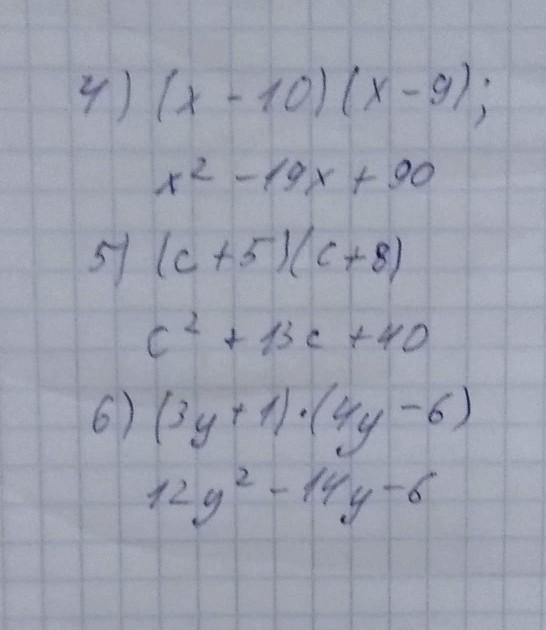 4) (x - 10)(x - 9);
x² - 19x + 90
5) (c + 5)(c + 8)
c² + 13c + 40
6) (3y + 1)·(4y - 6)
12y² - 14y - 6